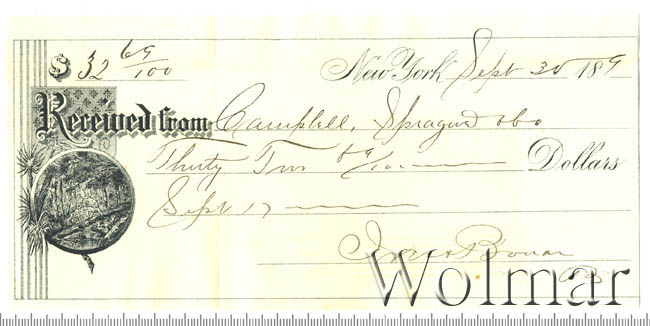 $ 32 69/100 New York Sept 30 189
Received from Campbell, Sprague
Thirty Two 69/100 Dollars
Sept 17
Bonar
Wolmar